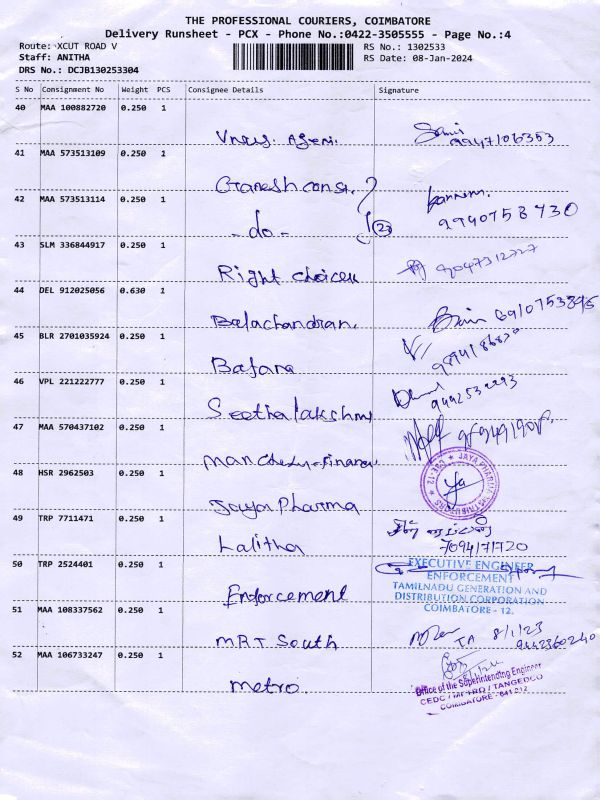 THE PROFESSIONAL COURIERS, COIMBATORE
Delivery Runsheet - PCX - Phone No.:0422-3505555 - Page No.:4
Route: XCUT ROAD V
RS No.: 1302533
Staff: ANITHA
RS Date: 08-Jan-2024
DRS No.: DCJB130253304
S No Consignment No Weight PCS Consignee Details Signature
40 MAA 100882720 0.250 1
99447106353
41 MAA 573513109 0.250 1
Ganesh const.
42 MAA 573513114 0.250 1
9940758730
-do- (2)
43 SLM 336844917 0.250 1
Right choices
44 DEL 912025056 0.630 1
Balachandran.
45 BLR 2701035924 0.250 1
Bajara
46 VPL 221222777 0.250 1
Seethalakshmi
47 MAA 570437102 0.250 1
48 HSR 2962503 0.250 1
JAYA PHARMA DISTRIBUTORS ★ CBE-12 ★
Jaya Pharma
49 TRP 7711471 0.250 1
Lalitha
7094171720
50 TRP 2524401 0.250 1
EXECUTIVE ENGINEER
ENFORCEMENT
TAMILNADU GENERATION AND
DISTRIBUTION CORPORATION
COIMBATORE - 12.
Enforcement
51 MAA 108337562 0.250 1
TA 8/1/23
9442360240
MRT South
52 MAA 106733247 0.250 1
Office of the Superintending Engineer
CEDC / METRO / TANGEDCO
COIMBATORE - 641 012
metro